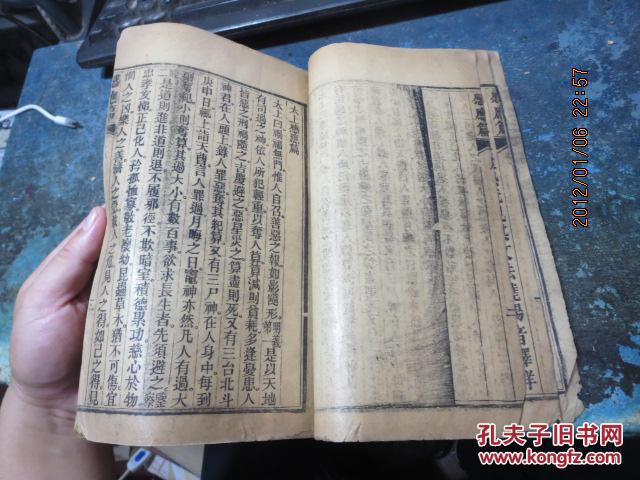 太上感應篇
太上曰禍福無門惟人自召善惡之報如影隨形 明義 是以天地
有司過之神依人所犯輕重以奪人算算減則貧耗多逢憂患人
皆惡之刑禍隨之吉慶避之惡星災之算盡則死又有三台北斗
神君在人頭上錄人罪惡奪其紀算又有三尸神在人身中每到
庚申日輒上詣天曹言人罪過月晦之日竈神亦然凡人有過大
則奪紀小則奪算其過大小有數百事欲求長生者先須避之
是道則進非道則退不履邪徑不欺暗室積德累功慈心於物
忠孝友悌正己化人矜孤恤寡敬老懷幼昆蟲草木猶不可傷宜
憫人之凶樂人之善濟人之急救人之危見人之得如己之得見
感應篇
感應篇
2012/01/06 22:57
孔夫子旧书网
www.kongfz.com